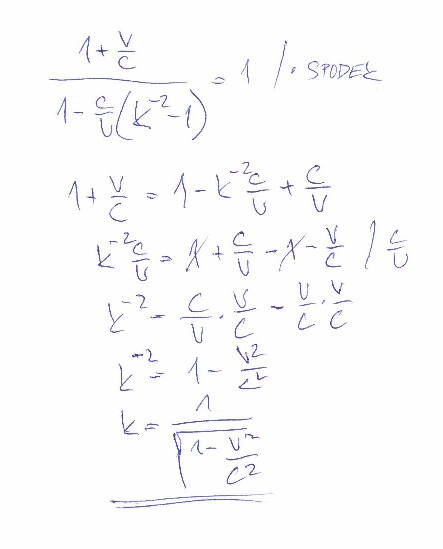 (1 + v/c) / (1 - c/v (k⁻² - 1)) = 1 / · SPODEK
1 + v/c = 1 - k⁻² c/v + c/v
k⁻² c/v = 1 + c/v - 1 - v/c / c/v
k⁻² = c/v · v/c - v/c · v/c
k⁻² = 1 - v²/c²
k = 1 / √(1 - v²/c²)